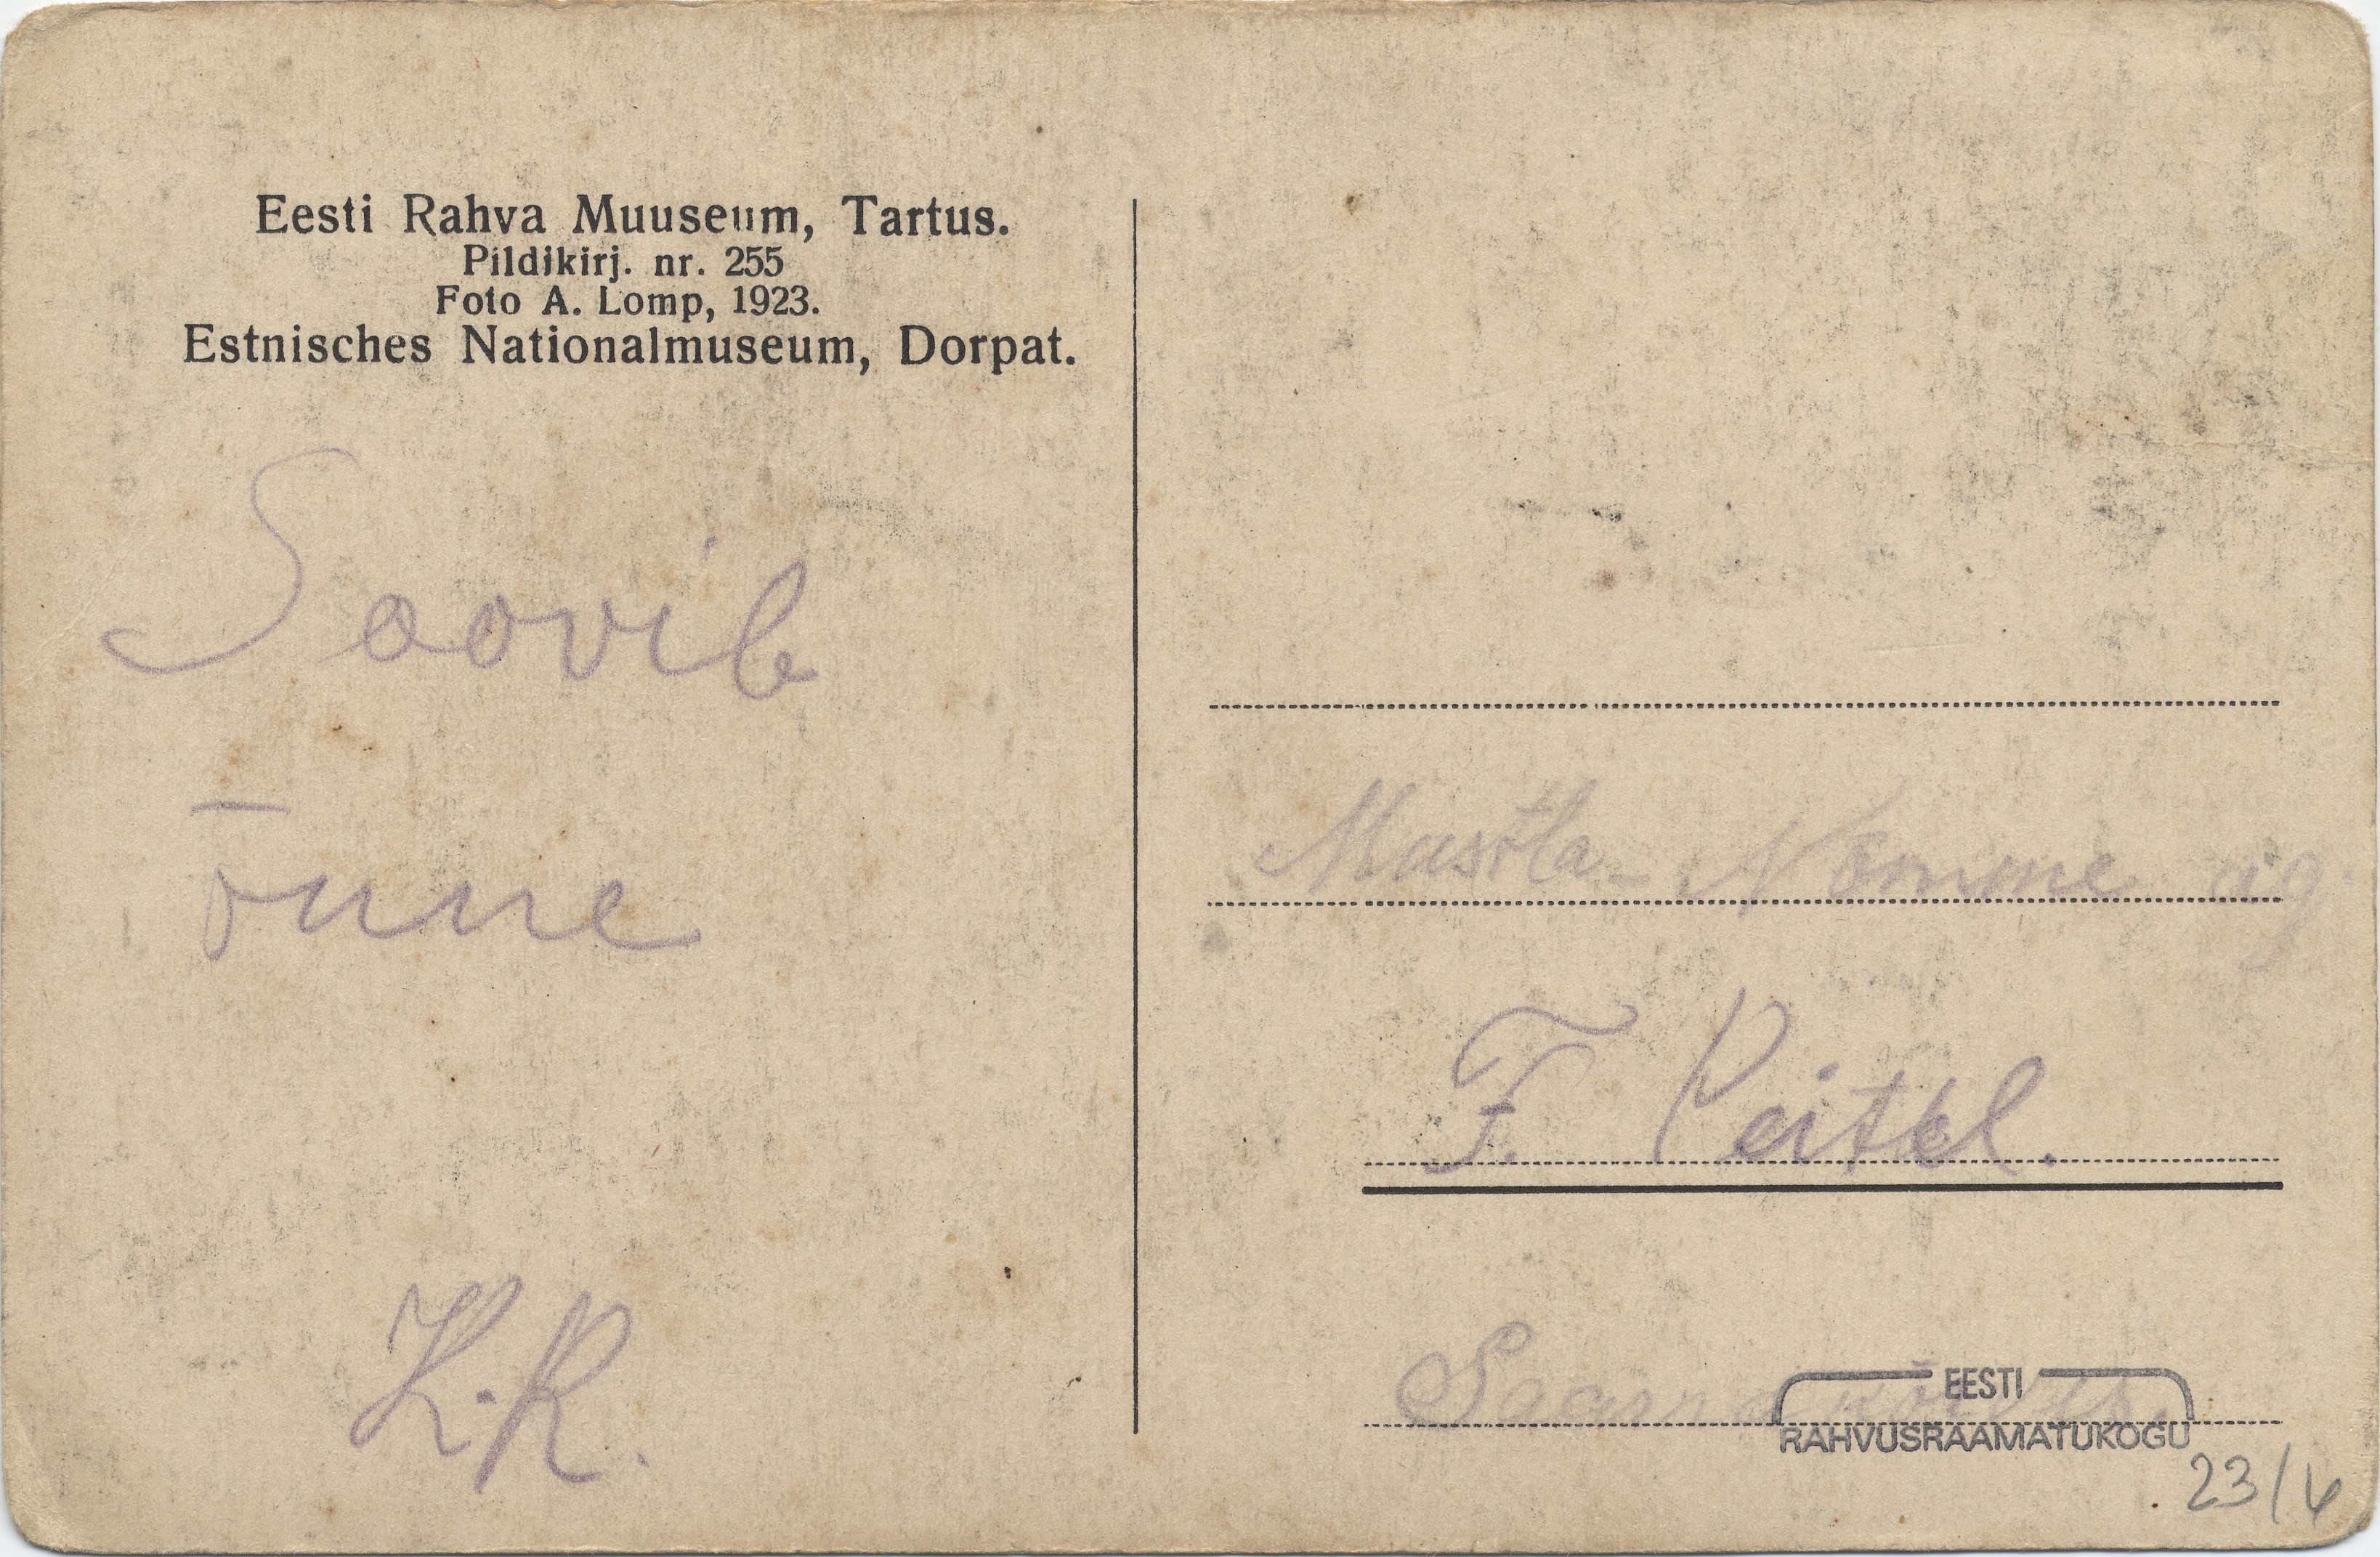 Eesti Rahva Muuseum, Tartus.
Pildikirj. nr. 255
Foto A. Lomp, 1923.
Estnisches Nationalmuseum, Dorpat.
Soovib
õnne
K. R.
Mustla-Nõmme ag.
F. Peitel.
EESTI
RAHVUSRAAMATUKOGU
23/4